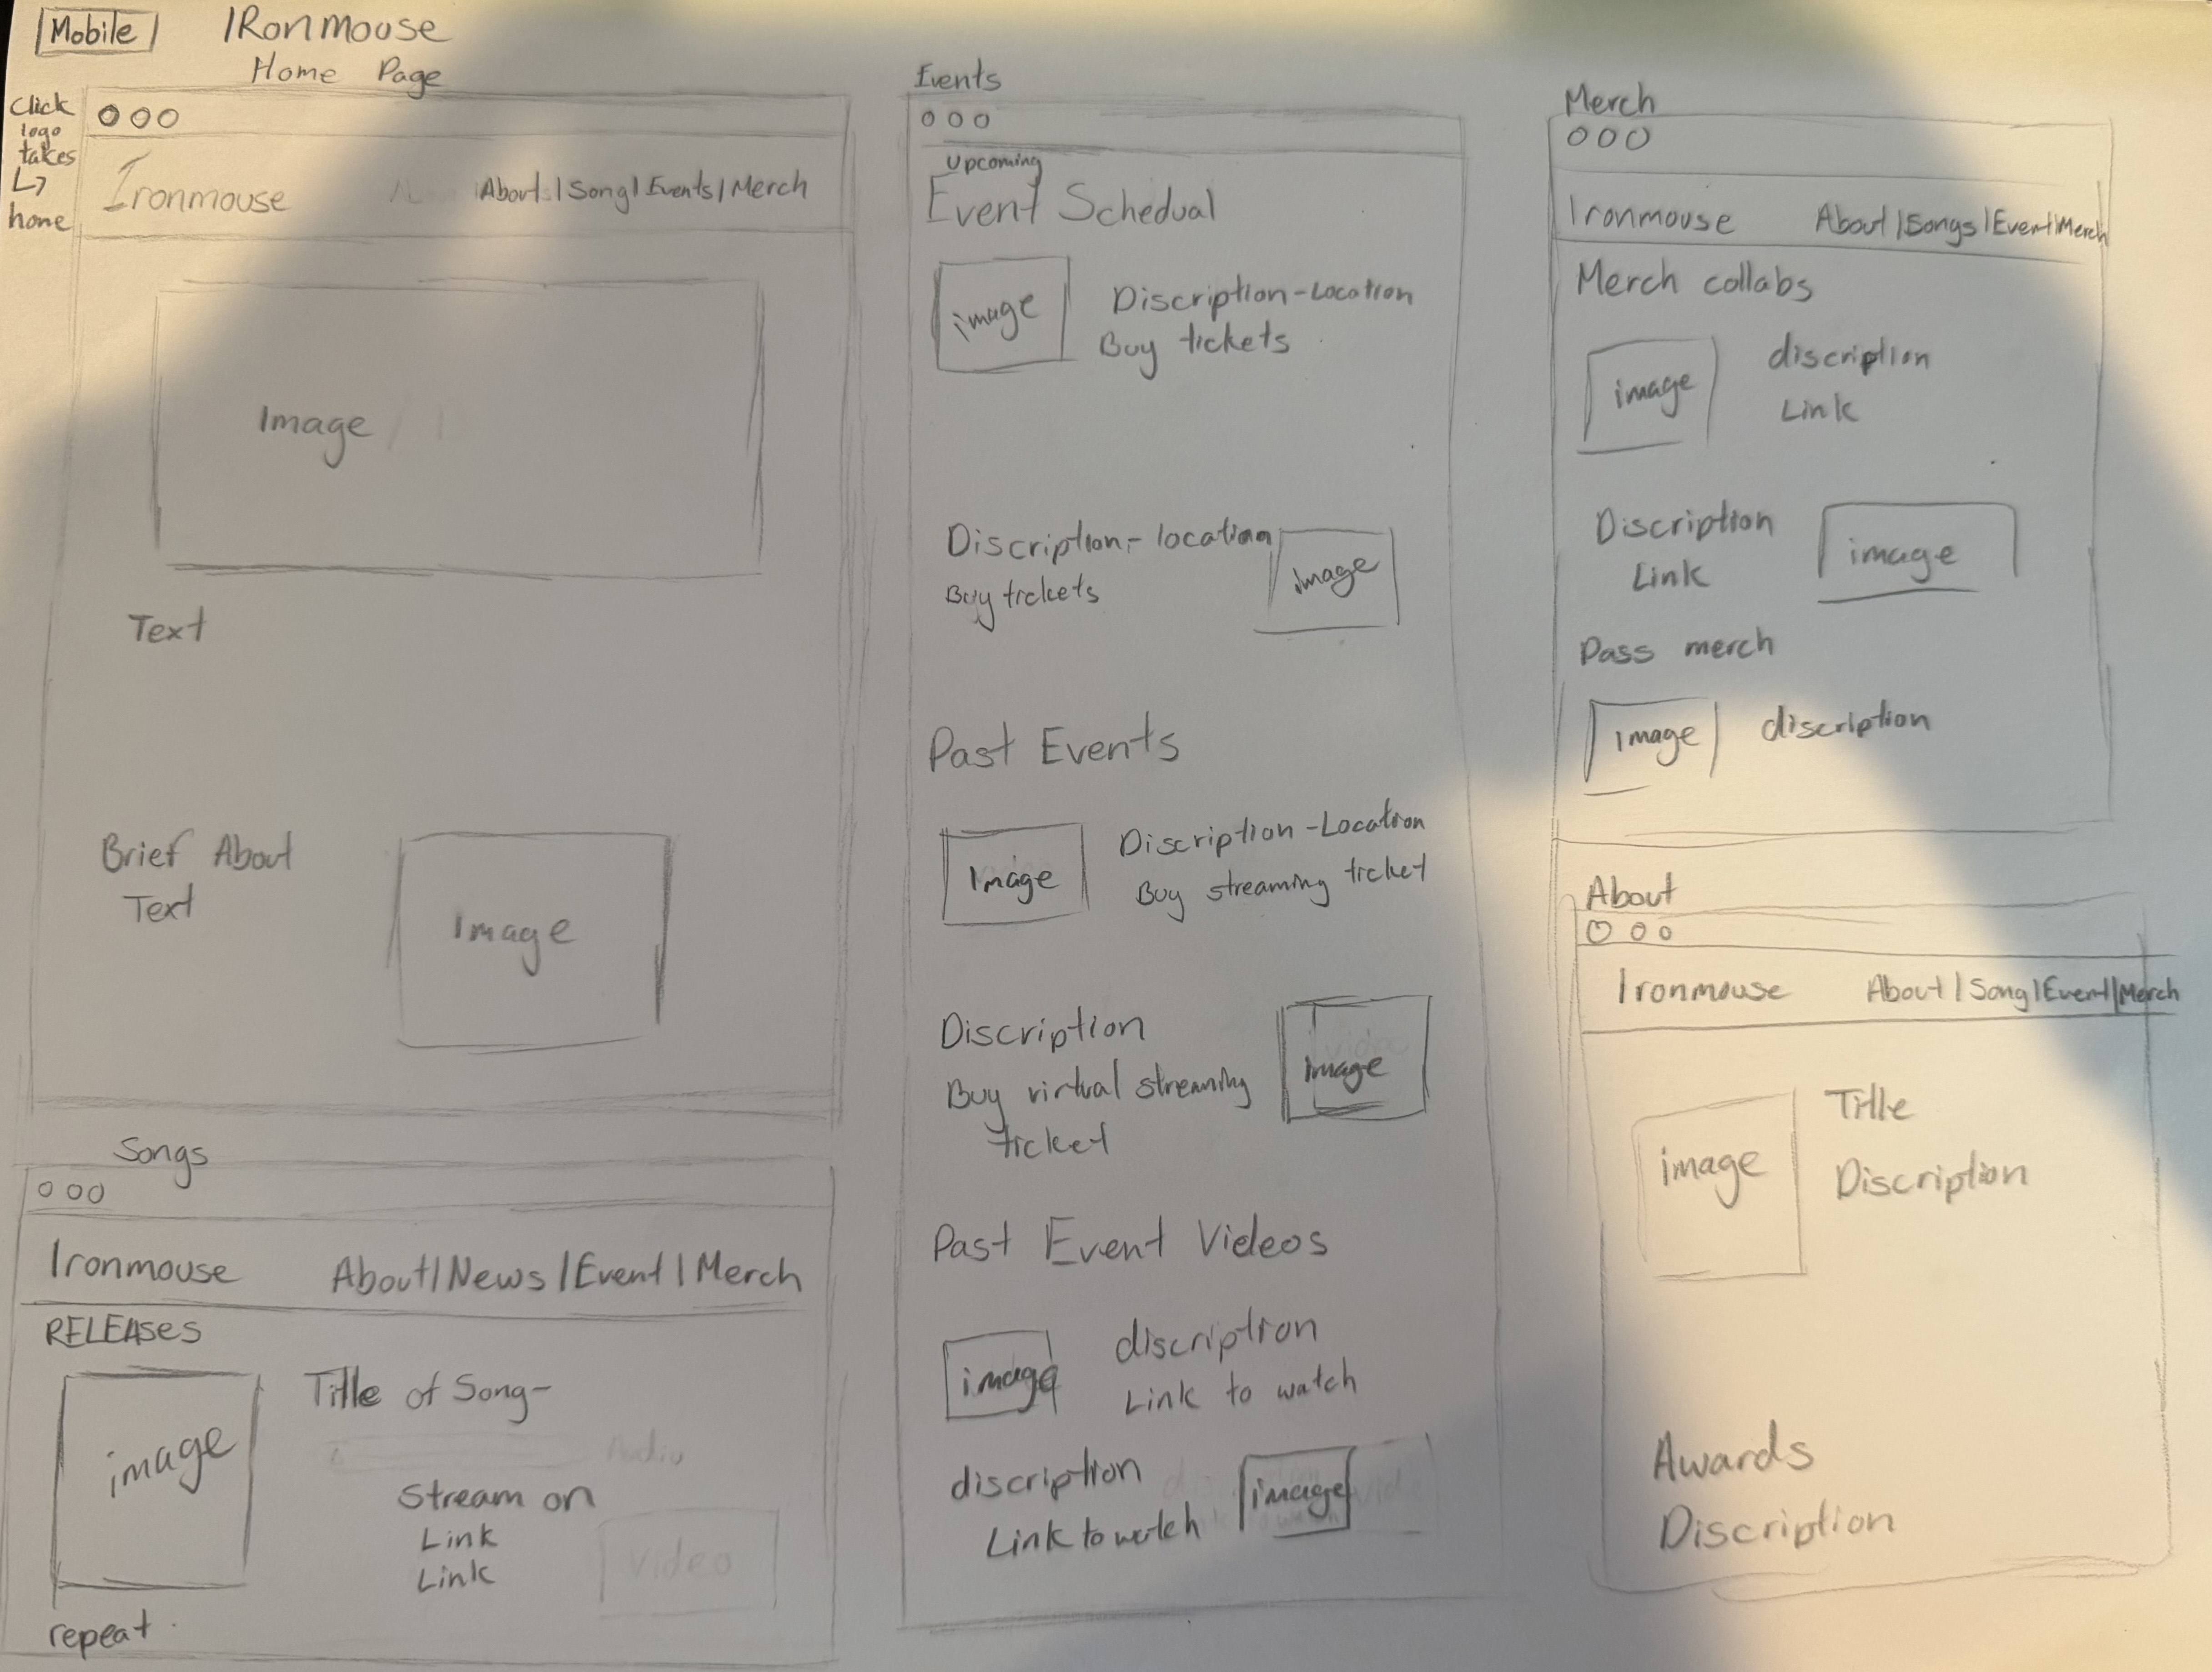 Mobile
IRonmouse
Home Page
Click
logo
takes
↳
home
Ironmouse
About | Song | Events | Merch
Image
Text
Brief About
Text
Image
Songs
Ironmouse
About | News | Event | Merch
RELEASES
image
Title of Song-
Audio
Stream on
Link
Link
Video
repeat
Events
Upcoming
Event Schedual
image
Discription-Location
Buy tickets
Discription-location
Buy tickets
image
Past Events
Image
Discription-Location
Buy streaming ticket
Discription
Buy virtual streaming
ticket
video
Image
Past Event Videos
image
discription
Link to watch
discription
Link to watch
image
Merch
Ironmouse
About | Songs | Event | Merch
Merch collabs
image
discription
Link
Discription
Link
image
Pass merch
image
discription
About
Ironmouse
About | Song | Event | Merch
image
Title
Discription
Awards
Discription